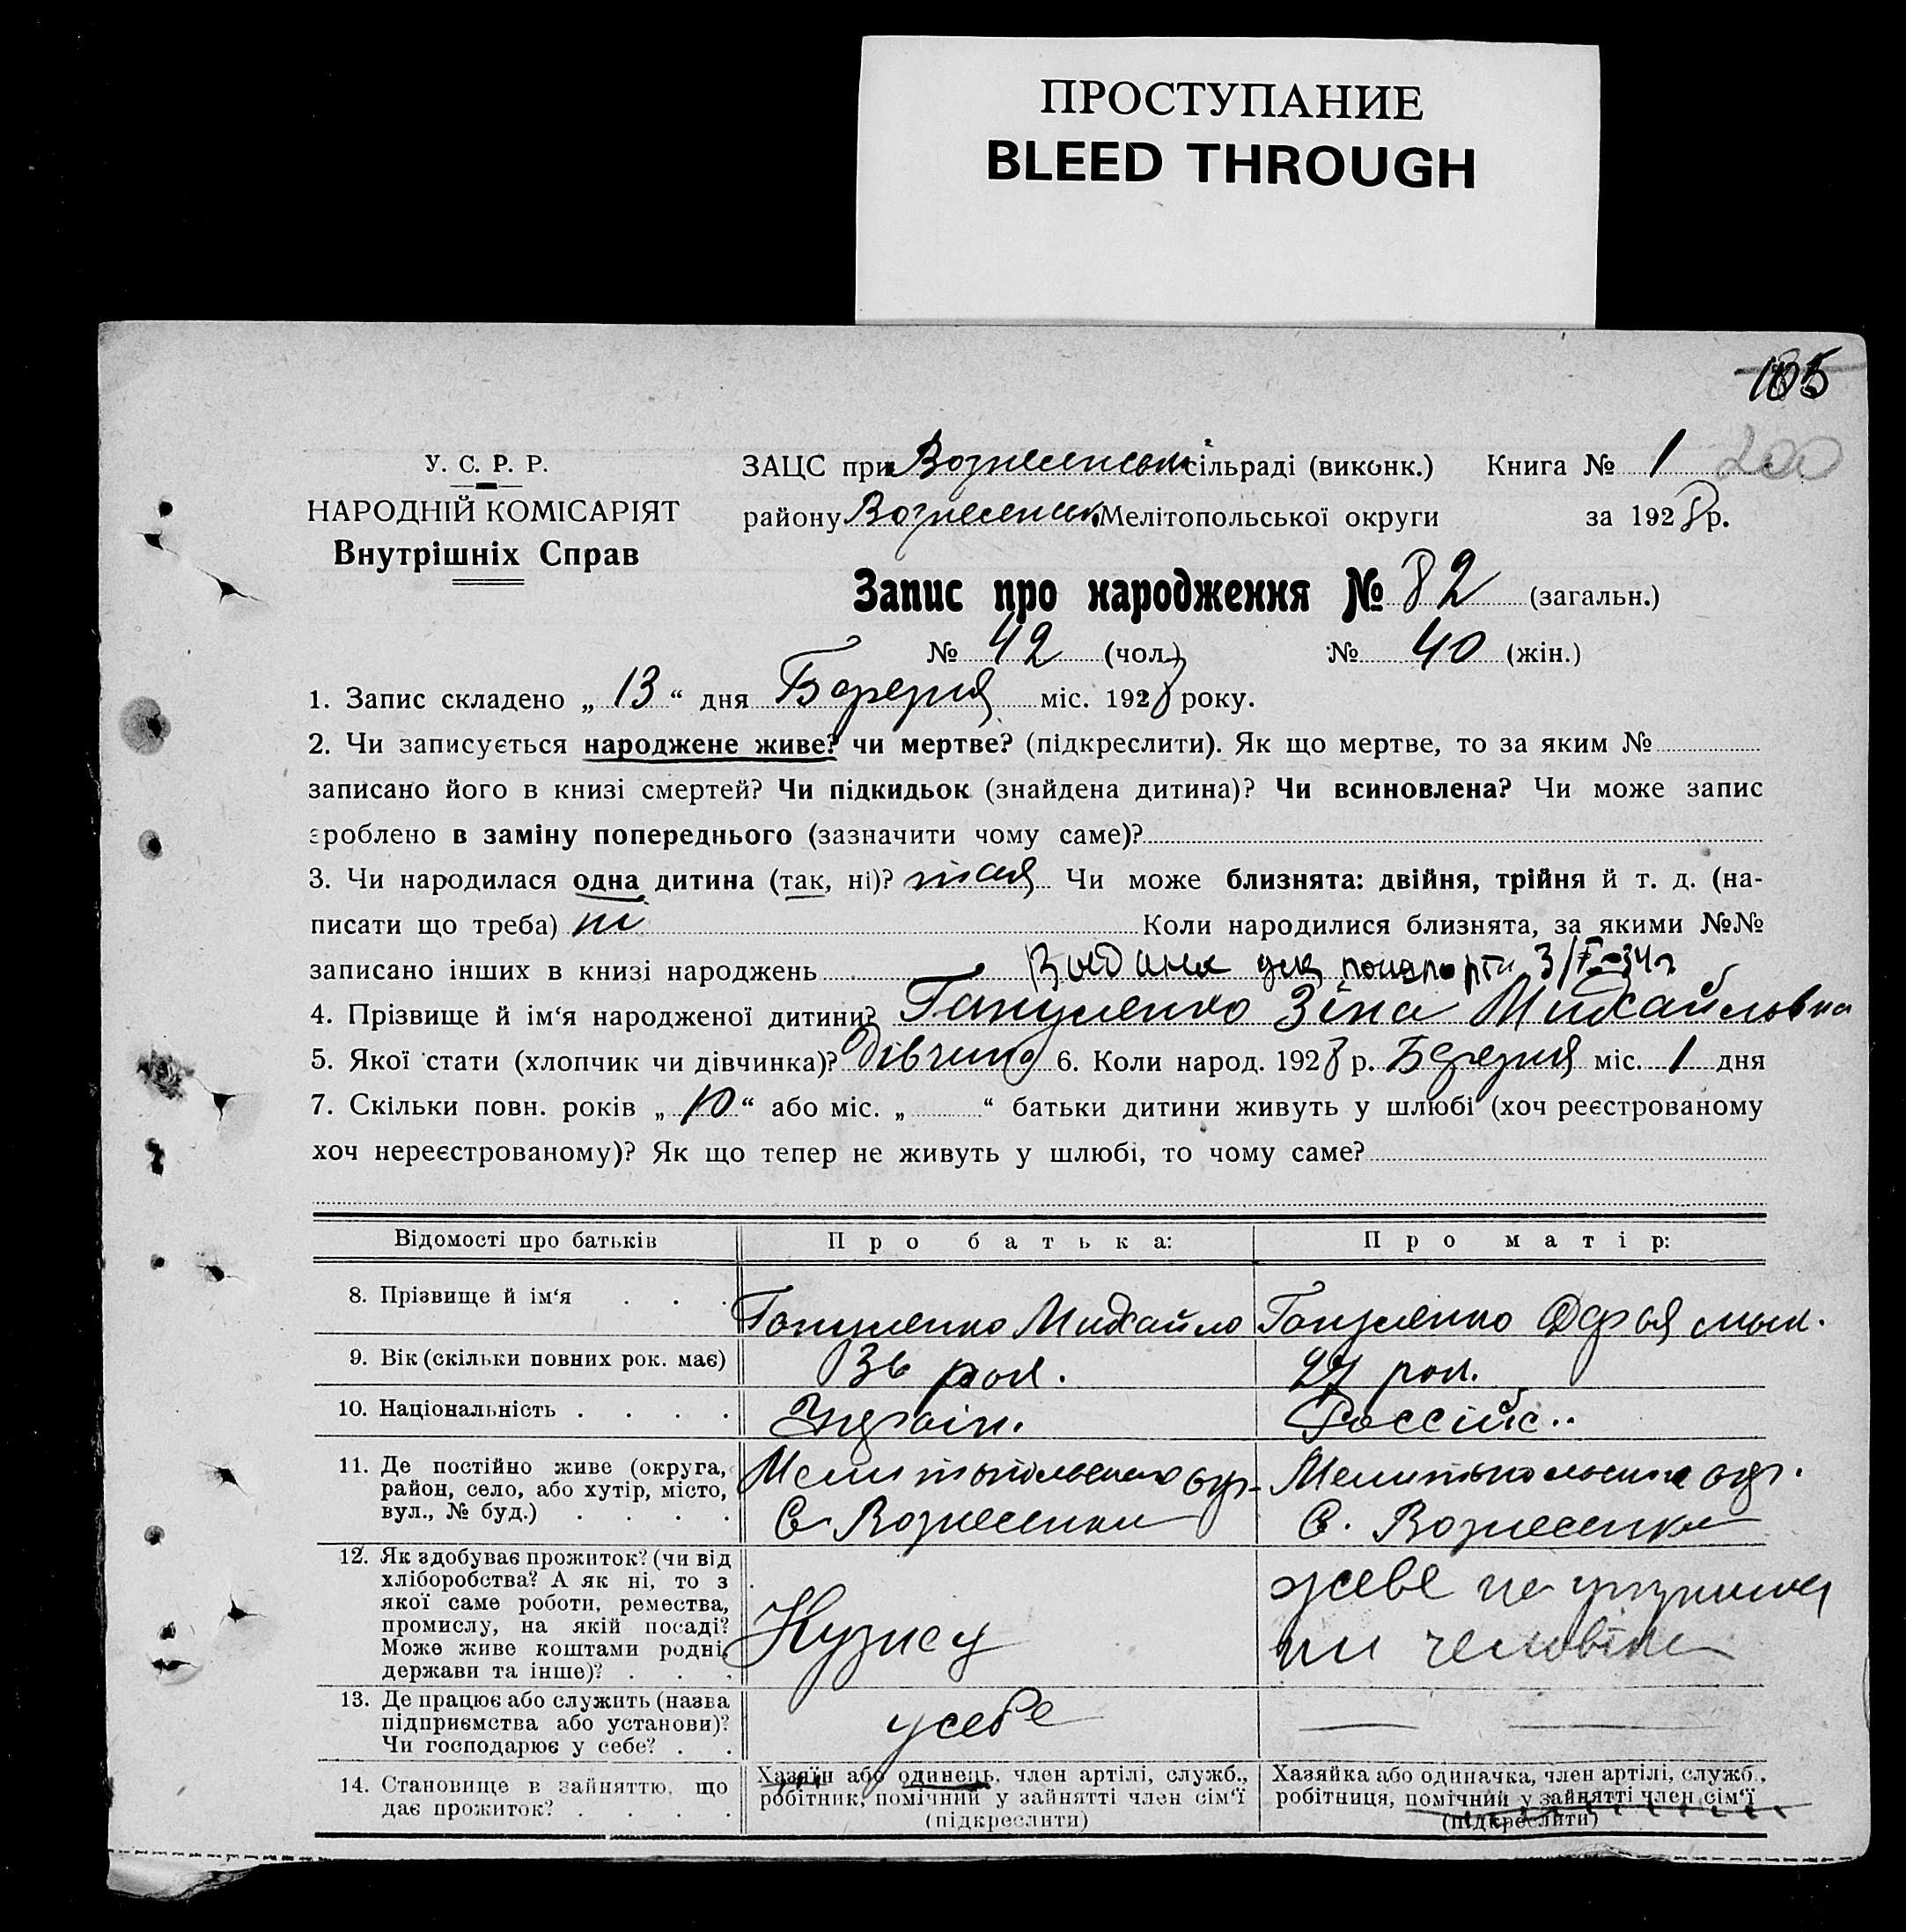 ПРОСТУПАНИЕ
BLEED THROUGH
105
200
У. С. Р. Р.
НАРОДНІЙ КОМІСАРІЯТ
Внутрішніх Справ
ЗАЦС при Вознесенській сільраді (виконк.) Книга № 1
району Вознесенськ. Мелітопольської округи за 1928 р.
Запис про народження № 82 (загальн.)
№ 42 (чол.) № 40 (жін.)
1. Запис складено „ 13 “ дня Березня міс. 1928 року.
2. Чи записується народжене живе? чи мертве? (підкреслити). Як що мертве, то за яким №
записано його в книзі смертей? Чи підкидьок (знайдена дитина)? Чи всиновлена? Чи може запис
зроблено в заміну попереднього (зазначити чому саме)?
3. Чи народилася одна дитина (так, ні)? Чи може близнята: двійня, трійня й т. д. (на-
писати що треба) ні Коли народилися близнята, за якими №№
записано інших в книзі народжень
4. Прізвище й ім‘я народженої дитини? Зіна Михайловна
5. Якої стати (хлопчик чи дівчинка)? Дівчина 6. Коли народ. 1928 р. Березня міс. 1 дня
7. Скільки повн. років „ 10 “ або міс. „ “ батьки дитини живуть у шлюбі (хоч реєстрованому
хоч нереєстрованому)? Як що тепер не живуть у шлюбі, то чому саме?
Відомості про батьків Про батька: Про матір:
8. Прізвище й ім‘я . . . Михайло Дарья
9. Вік (скільки повних рок. має) 36 рок. 27 рок.
10. Національність . . . . Україн. Россійс..
11. Де постійно живе (округа, район, село, або хутір, місто, вул., № буд.) . . . . Мелитопольськ окр. С. Вознесенка Мелитопольська окр. С. Вознесенка
12. Як здобуває прожиток? (чи від хліборобства? А як ні, то з якої саме роботи, ремества, промислу, на якій посаді? Може живе коштами родні, держави та інше)? . . . живе на
13. Де працює або служить (назва підприємства або установи)? Чи господарює у себе? . . усебе
14. Становище в зайняттю, що дає прожиток? . . . . Хазяїн або одинець, член артілі, служб., робітник, помічний у зайнятті член сім‘ї (підкреслити) Хазяйка або одиначка, член артілі, служб., робітниця, помічний у зайнятті член сім‘ї (підкреслити)